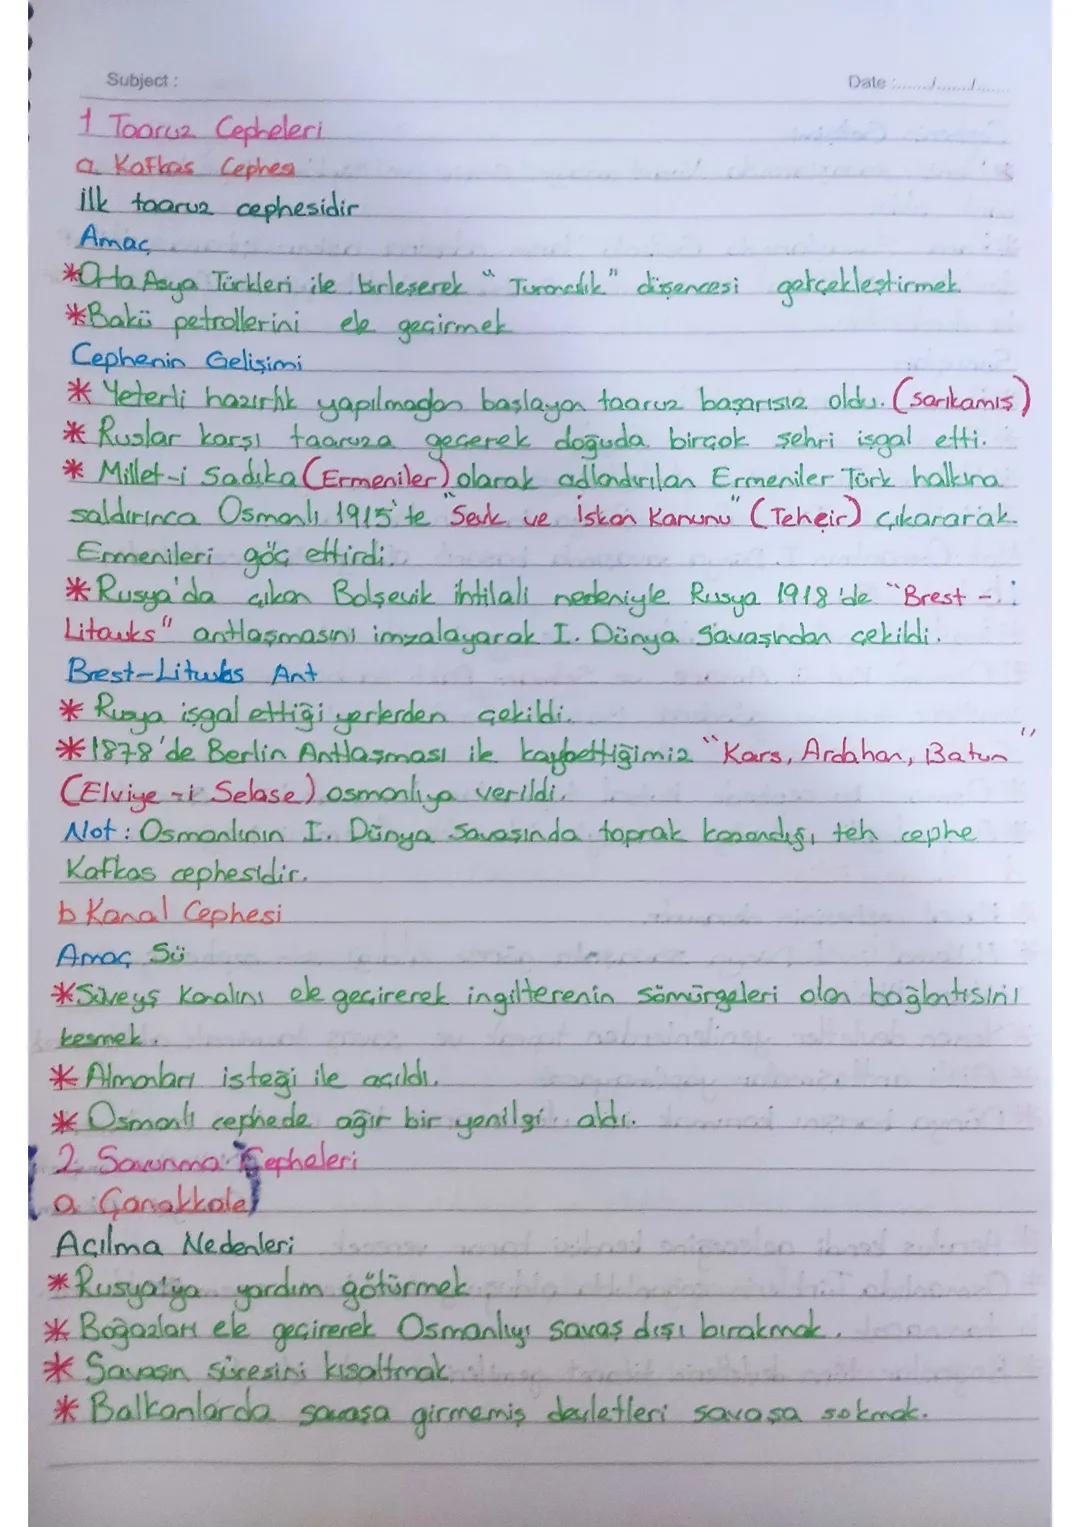 Subject :
Date :......./......./.......
1 Taaruz Cepheleri
a Kafkas Cephesi
ilk taaruz cephesidir
Amaç
*Orta Asya Türkleri ile birleserek " Turancılık" düşencesi gerçekleştirmek
*Bakü petrollerini ele geçirmek
Cephenin Gelişimi
* Yeterli hazırlık yapılmadan başlayan taaruz başarısız oldu. (sarıkamış)
* Ruslar karşı taaruza geçerek doğuda birçok şehri işgal etti.
* Millet-i Sadıka (Ermeniler) olarak adlandırılan Ermeniler Türk halkına
saldırınca Osmanlı 1915'te "Sevk ve İskan Kanunu" (Teheir) çıkararak.
Ermenileri göç ettirdi.
* Rusya'da çıkan Bolşevik ihtilali nedeniyle Rusya 1918'de "Brest -
Litowks" antlaşmasını imzalayarak I. Dünya Savaşından çekildi.
Brest-Litwks Ant
* Rusya işgal ettiği yerlerden çekildi.
*1878'de Berlin Antlaşması ile kaybettiğimiz "Kars, Ardahan, Batum"
(Elviye-i Selase) osmanlıya verildi.
Not : Osmanlının I. Dünya Savaşında toprak kazandığı teh cephe
Kafkas cephesidir.
b Kanal Cephesi
Amaç Sü
*Süveyş Kanalını ele geçirerek ingilterenin sömürgeleri olan bağlantısını
kesmek.
* Almanları isteği ile açıldı.
* Osmanlı cephede ağır bir yenilgi aldı.
2 Savunma Cepheleri
a Çanakkale
Açılma Nedenleri
* Rusya'ya yardım götürmek
* Boğazları ele geçirerek Osmanlıyı savaş dışı bırakmak.
* Savaşın süresini kısaltmak
* Balkanlarda savaşa girmemiş devletleri savaşa sokmak.